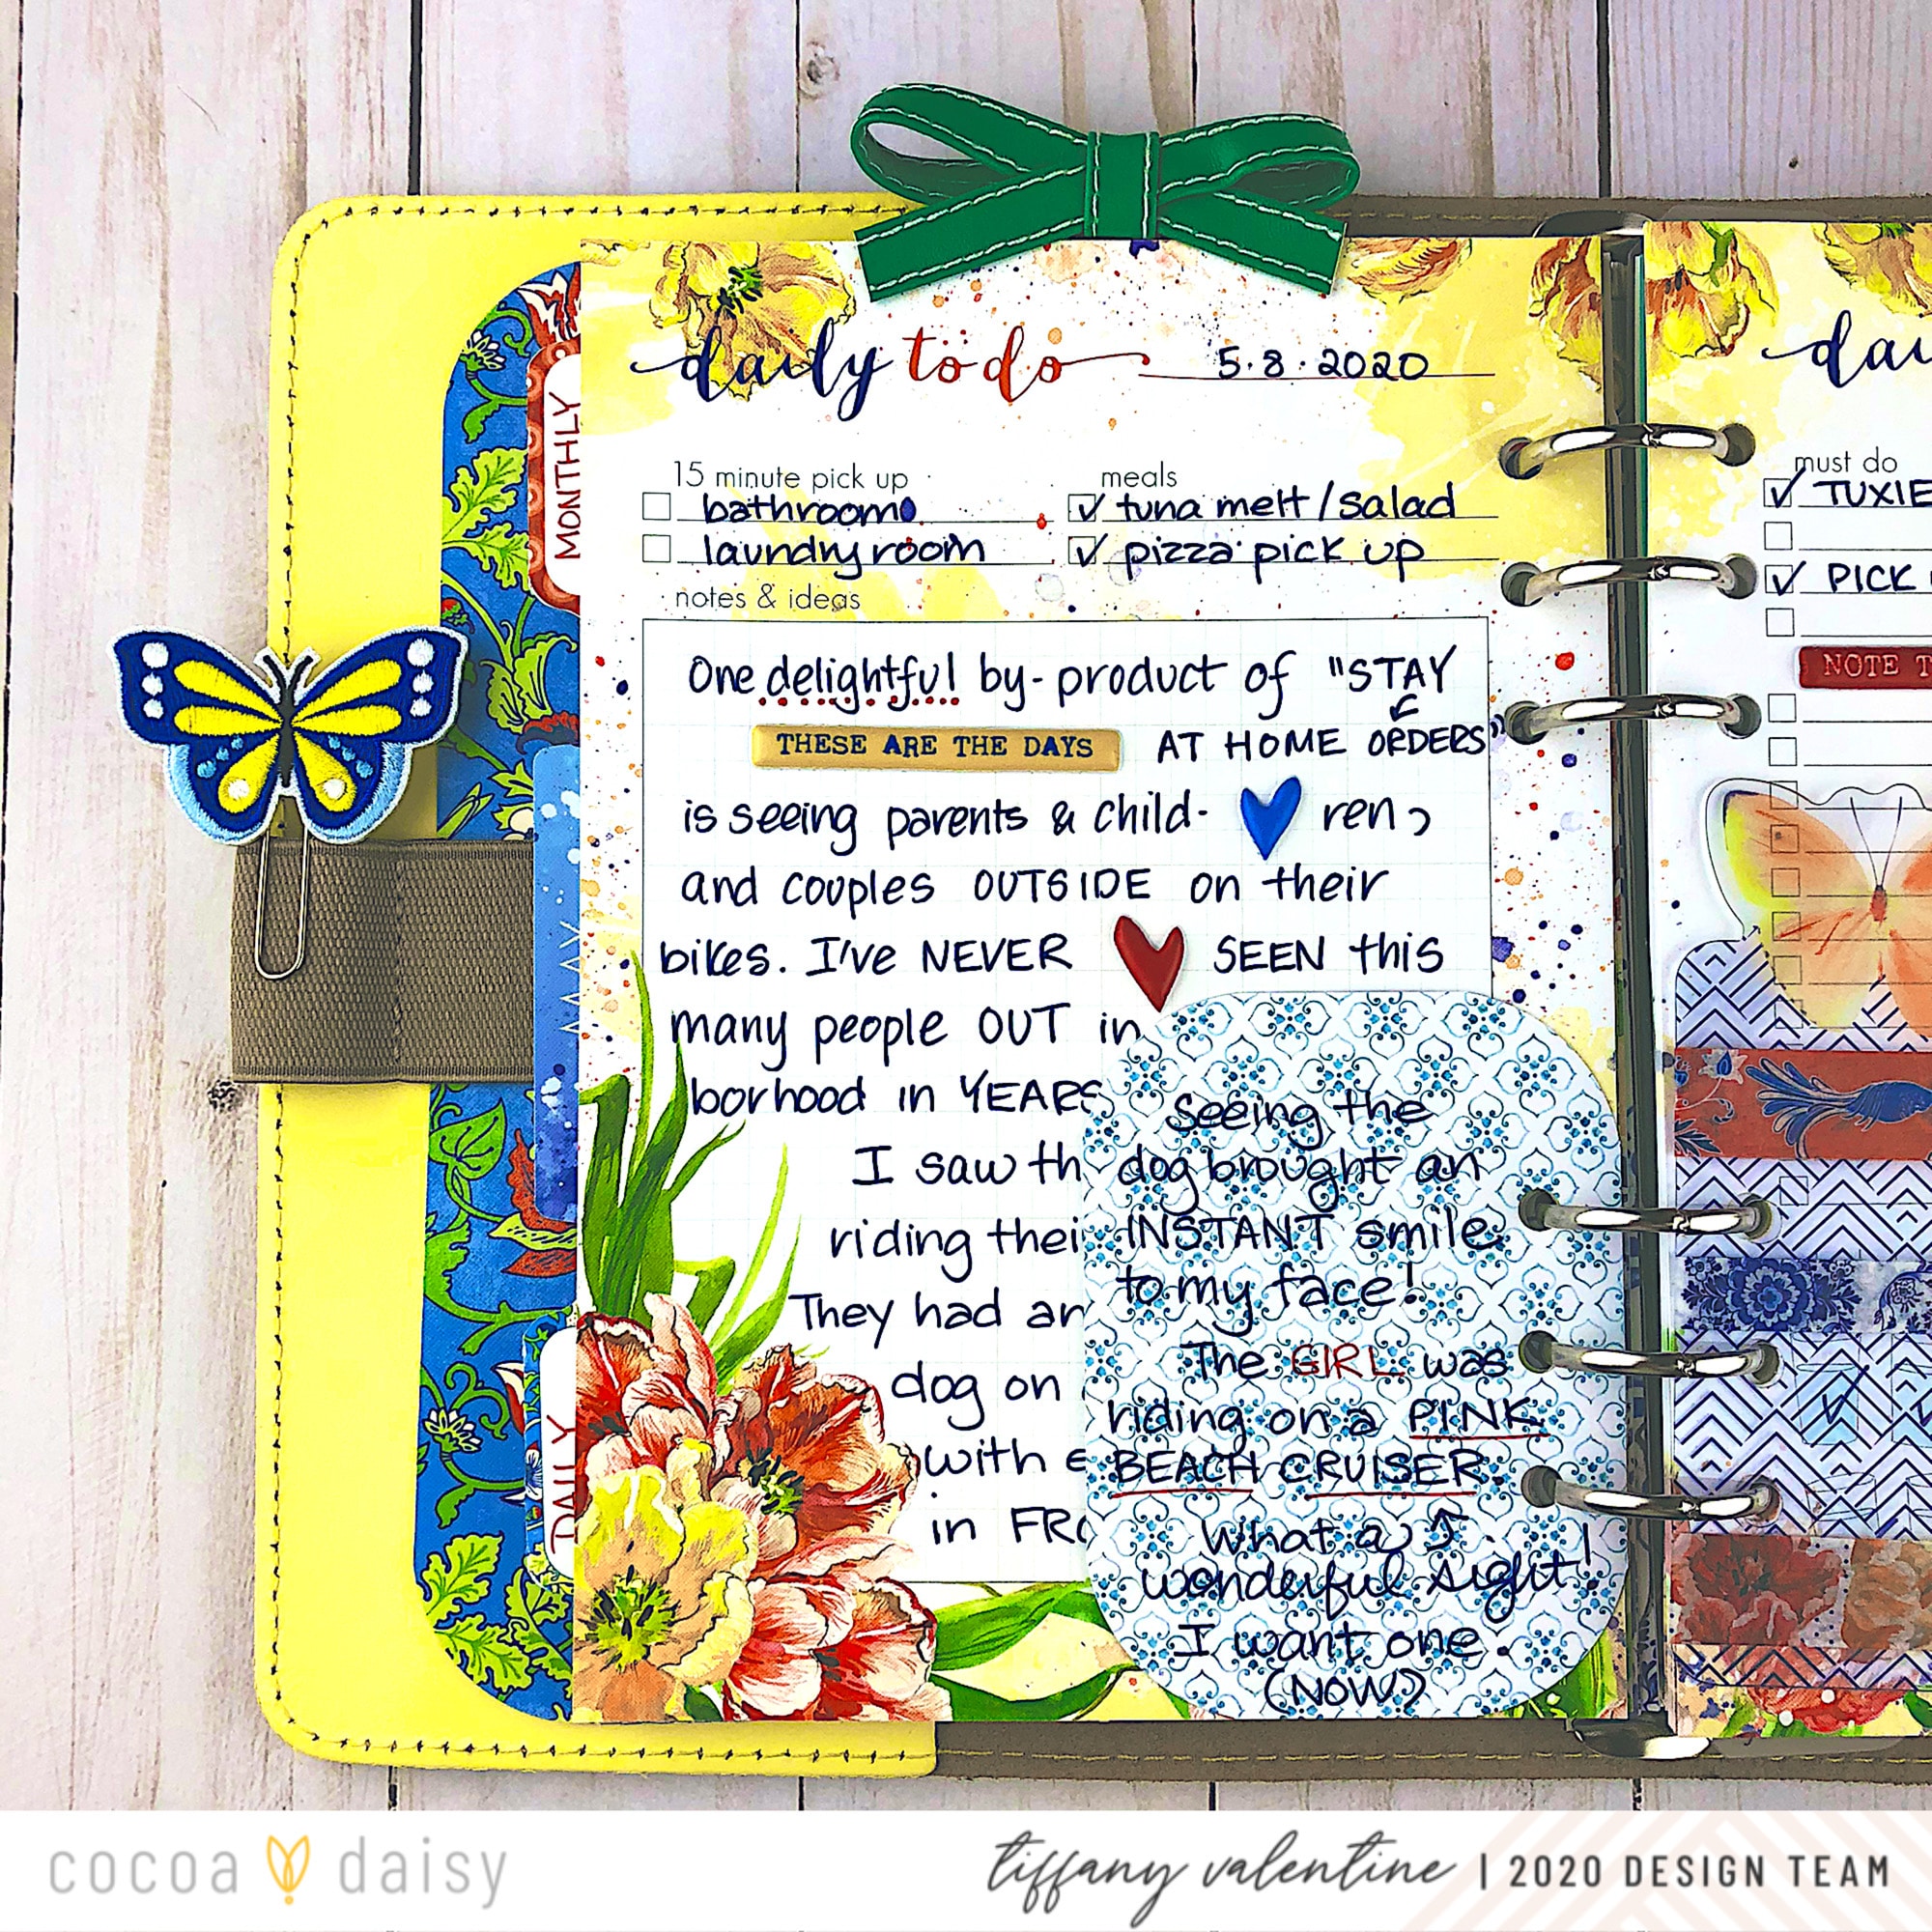 daily to do 5.8.2020
15 minute pick up
bathroom
laundry room
meals
tuna melt/salad
pizza pick up
notes & ideas
One delightful by-product of "STAY
THESE ARE THE DAYS
AT HOME ORDERS"
is seeing parents & child-ren,
and couples OUTSIDE on their
bikes. I've NEVER SEEN this
many people OUT in
borhood in YEARS
I saw th
riding thei
They had an
dog on
with
in FRO
seeing the
dog brought an
INSTANT smile
to my face!
The GIRL was
riding on a PINK
BEACH CRUISER.
What a
wonderful sight!
I want one.
(NOW?)
MONTHLY
MAY
DAILY
dai
must do
TUXIE
PICK
NOTE T
cocoa daisy
tiffany valentine | 2020 DESIGN TEAM